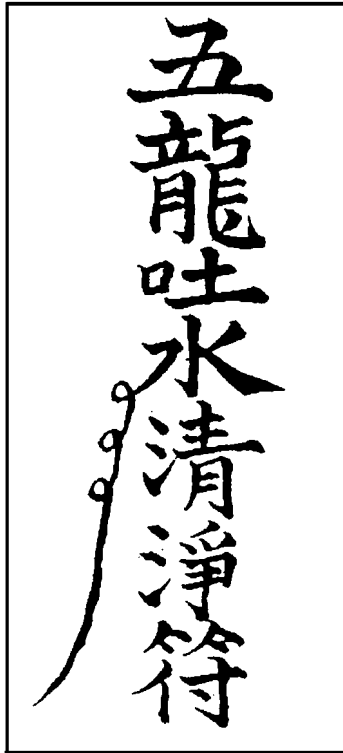 五龍吐水清淨符